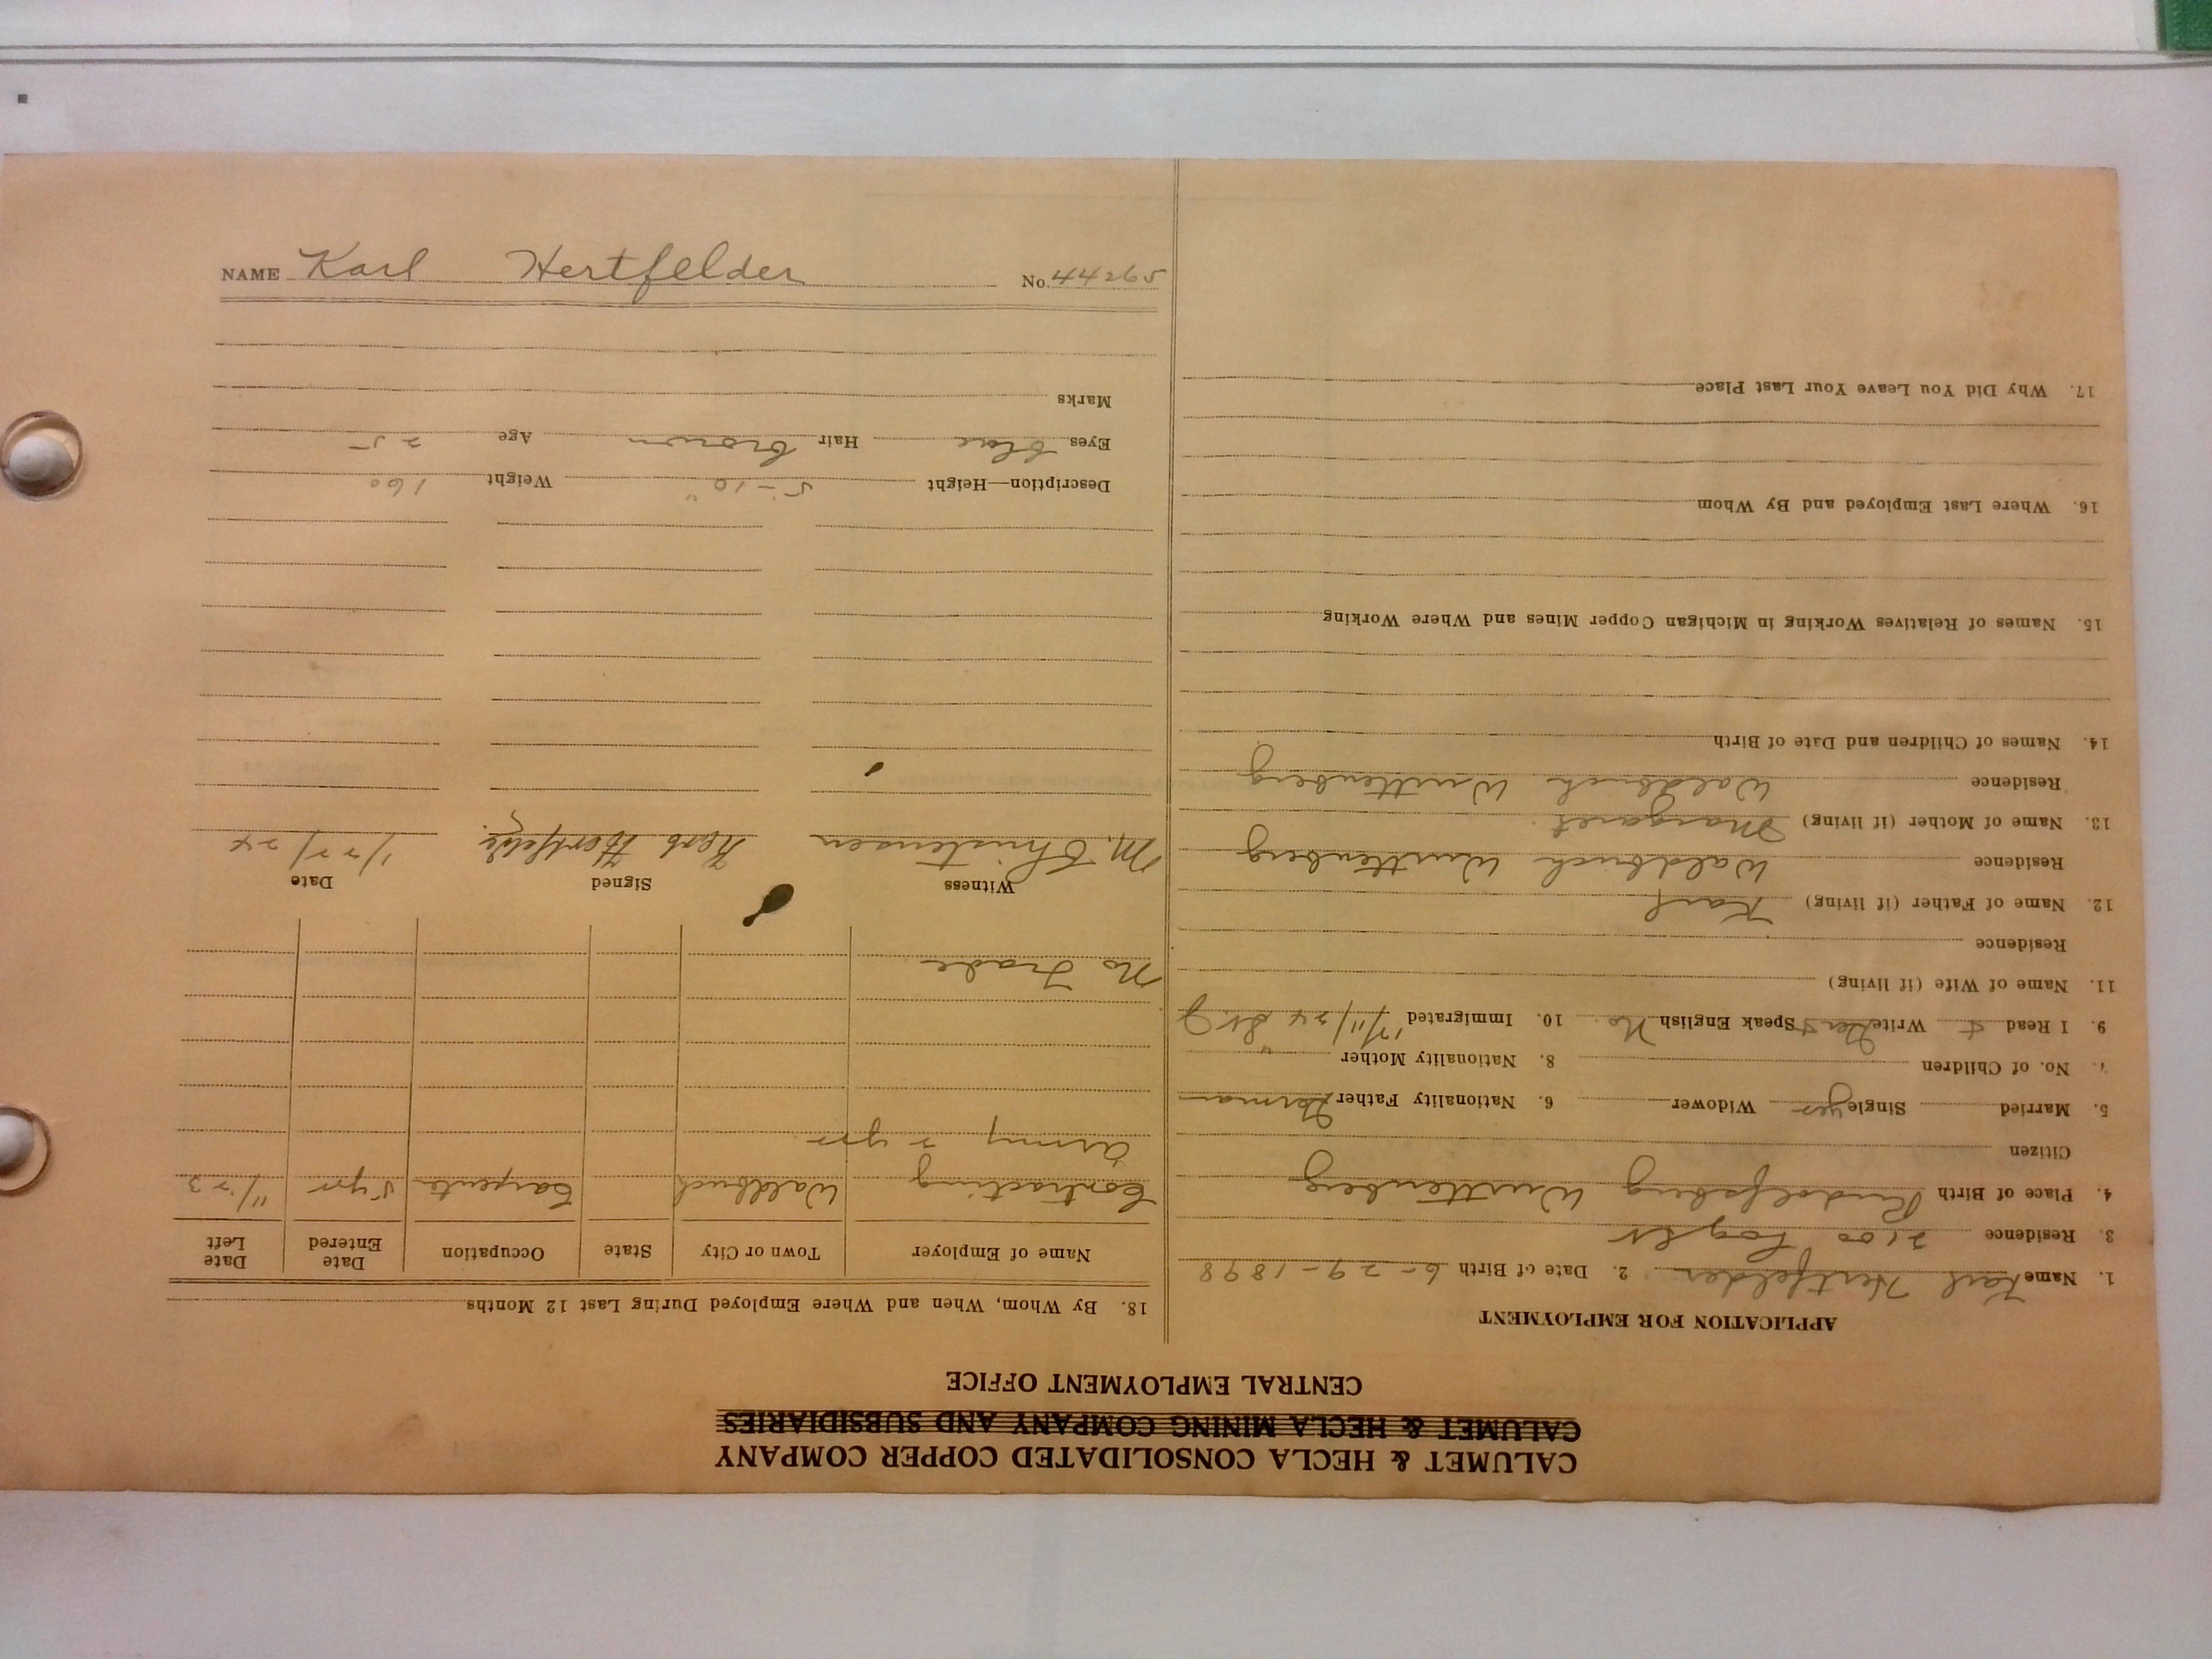 NAME Karl Hertfelder No. 44265
CALUMET & HECLA CONSOLIDATED COPPER COMPANY
CALUMET & HECLA MINING COMPANY AND SUBSIDIARIES
CENTRAL EMPLOYMENT OFFICE
APPLICATION FOR EMPLOYMENT
1. Name Karl Hertfelder 2. Date of Birth 6-29-1898
3. Residence 2100 Log St
4. Place of Birth Rudolfsberg Wurttenberg
Citizen
5. Married Single yes Widower 6. Nationality Father German
7. No. of Children 8. Nationality Mother "
9. I Read & Write Speak English No 10. Immigrated
11. Name of Wife (if living)
Residence
12. Name of Father (if living) Karl
Residence Waldbuch Wurttenberg
13. Name of Mother (if living) Margaret
Residence Waldbuch Wurttenberg
14. Names of Children and Date of Birth
15. Names of Relatives Working in Michigan Copper Mines and Where Working
16. Where Last Employed and By Whom
17. Why Did You Leave Your Last Place
18. By Whom, When and Where Employed During Last 12 Months
Name of Employer Town or City State Occupation Date Entered Date Left
Contracting Waldbuch Carpenter 5 yrs 11/23
Army 2 yrs
No Trade
Witness Signed Date
M. Christensen Karl Hertfelder 1/22/24
Description—Height 5'-10" Weight 160
Eyes blue Hair brown Age 25
Marks